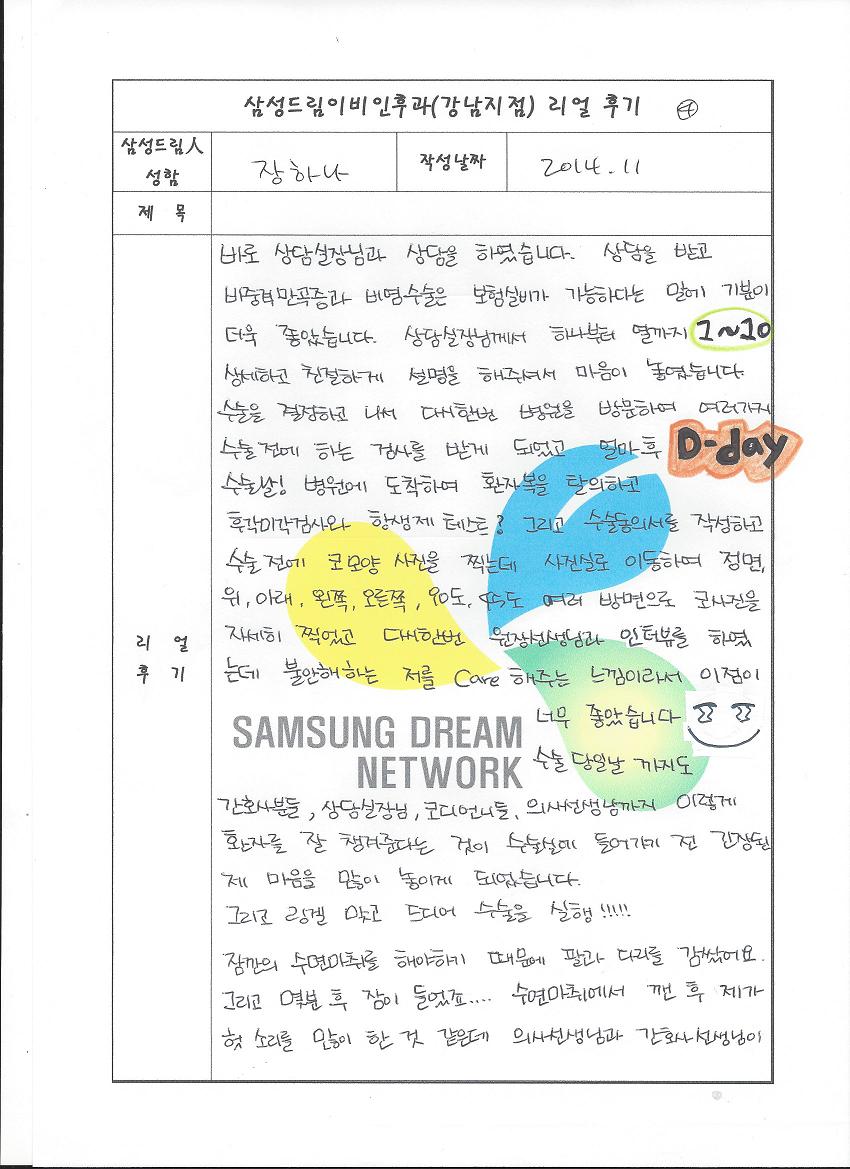 삼성드림이비인후과(강남지점) 리얼 후기 ④
삼성드림人 성함 장하나 작성날짜 2014.11
제 목
리 얼 후 기
바로 상담실장님과 상담을 하였습니다. 상담을 받고
비중격만곡증과 비염수술은 보험실비가 가능하다는 말에 기분이
더욱 좋았습니다. 상담실장님께서 하나부터 열까지 1~10
상세하고 친절하게 설명을 해주셔서 마음이 놓였습니다
수술을 결정하고 나서 다시한번 병원을 방문하여 여러가지
수술전에 하는 검사를 받게 되었고 얼마후 D-day
수술날! 병원에 도착하여 환자복을 탈의하고
후각미각검사와 항생제 테스트? 그리고 수술동의서를 작성하고
수술전에 코모양 사진을 찍는데 사진실로 이동하여 정면,
위, 아래, 왼쪽, 오른쪽, 90도, 45도 여러 방면으로 코사진을
자세히 찍었고 다시한번 원장선생님과 인터뷰를 하였
는데 불안해하는 저를 Care 해주는 느낌이라서 이점이
너무 좋았습니다
SAMSUNG DREAM
NETWORK
수술당일날 까지도
간호사분들, 상담실장님, 코디언니들, 의사선생님까지 이렇게
환자를 잘 챙겨준다는 것이 수술실에 들어가기 전 긴장된
제 마음을 많이 놓이게 되었습니다.
그리고 링겔 맞고 드디어 수술을 실행!!!!!
잠깐의 수면마취를 해야하기 때문에 팔과 다리를 감쌌어요.
그리고 몇분 후 잠이 들었죠.... 수면마취에서 깬 후 제가
헛 소리를 많이 한 것 같은데 의사선생님과 간호사선생님이